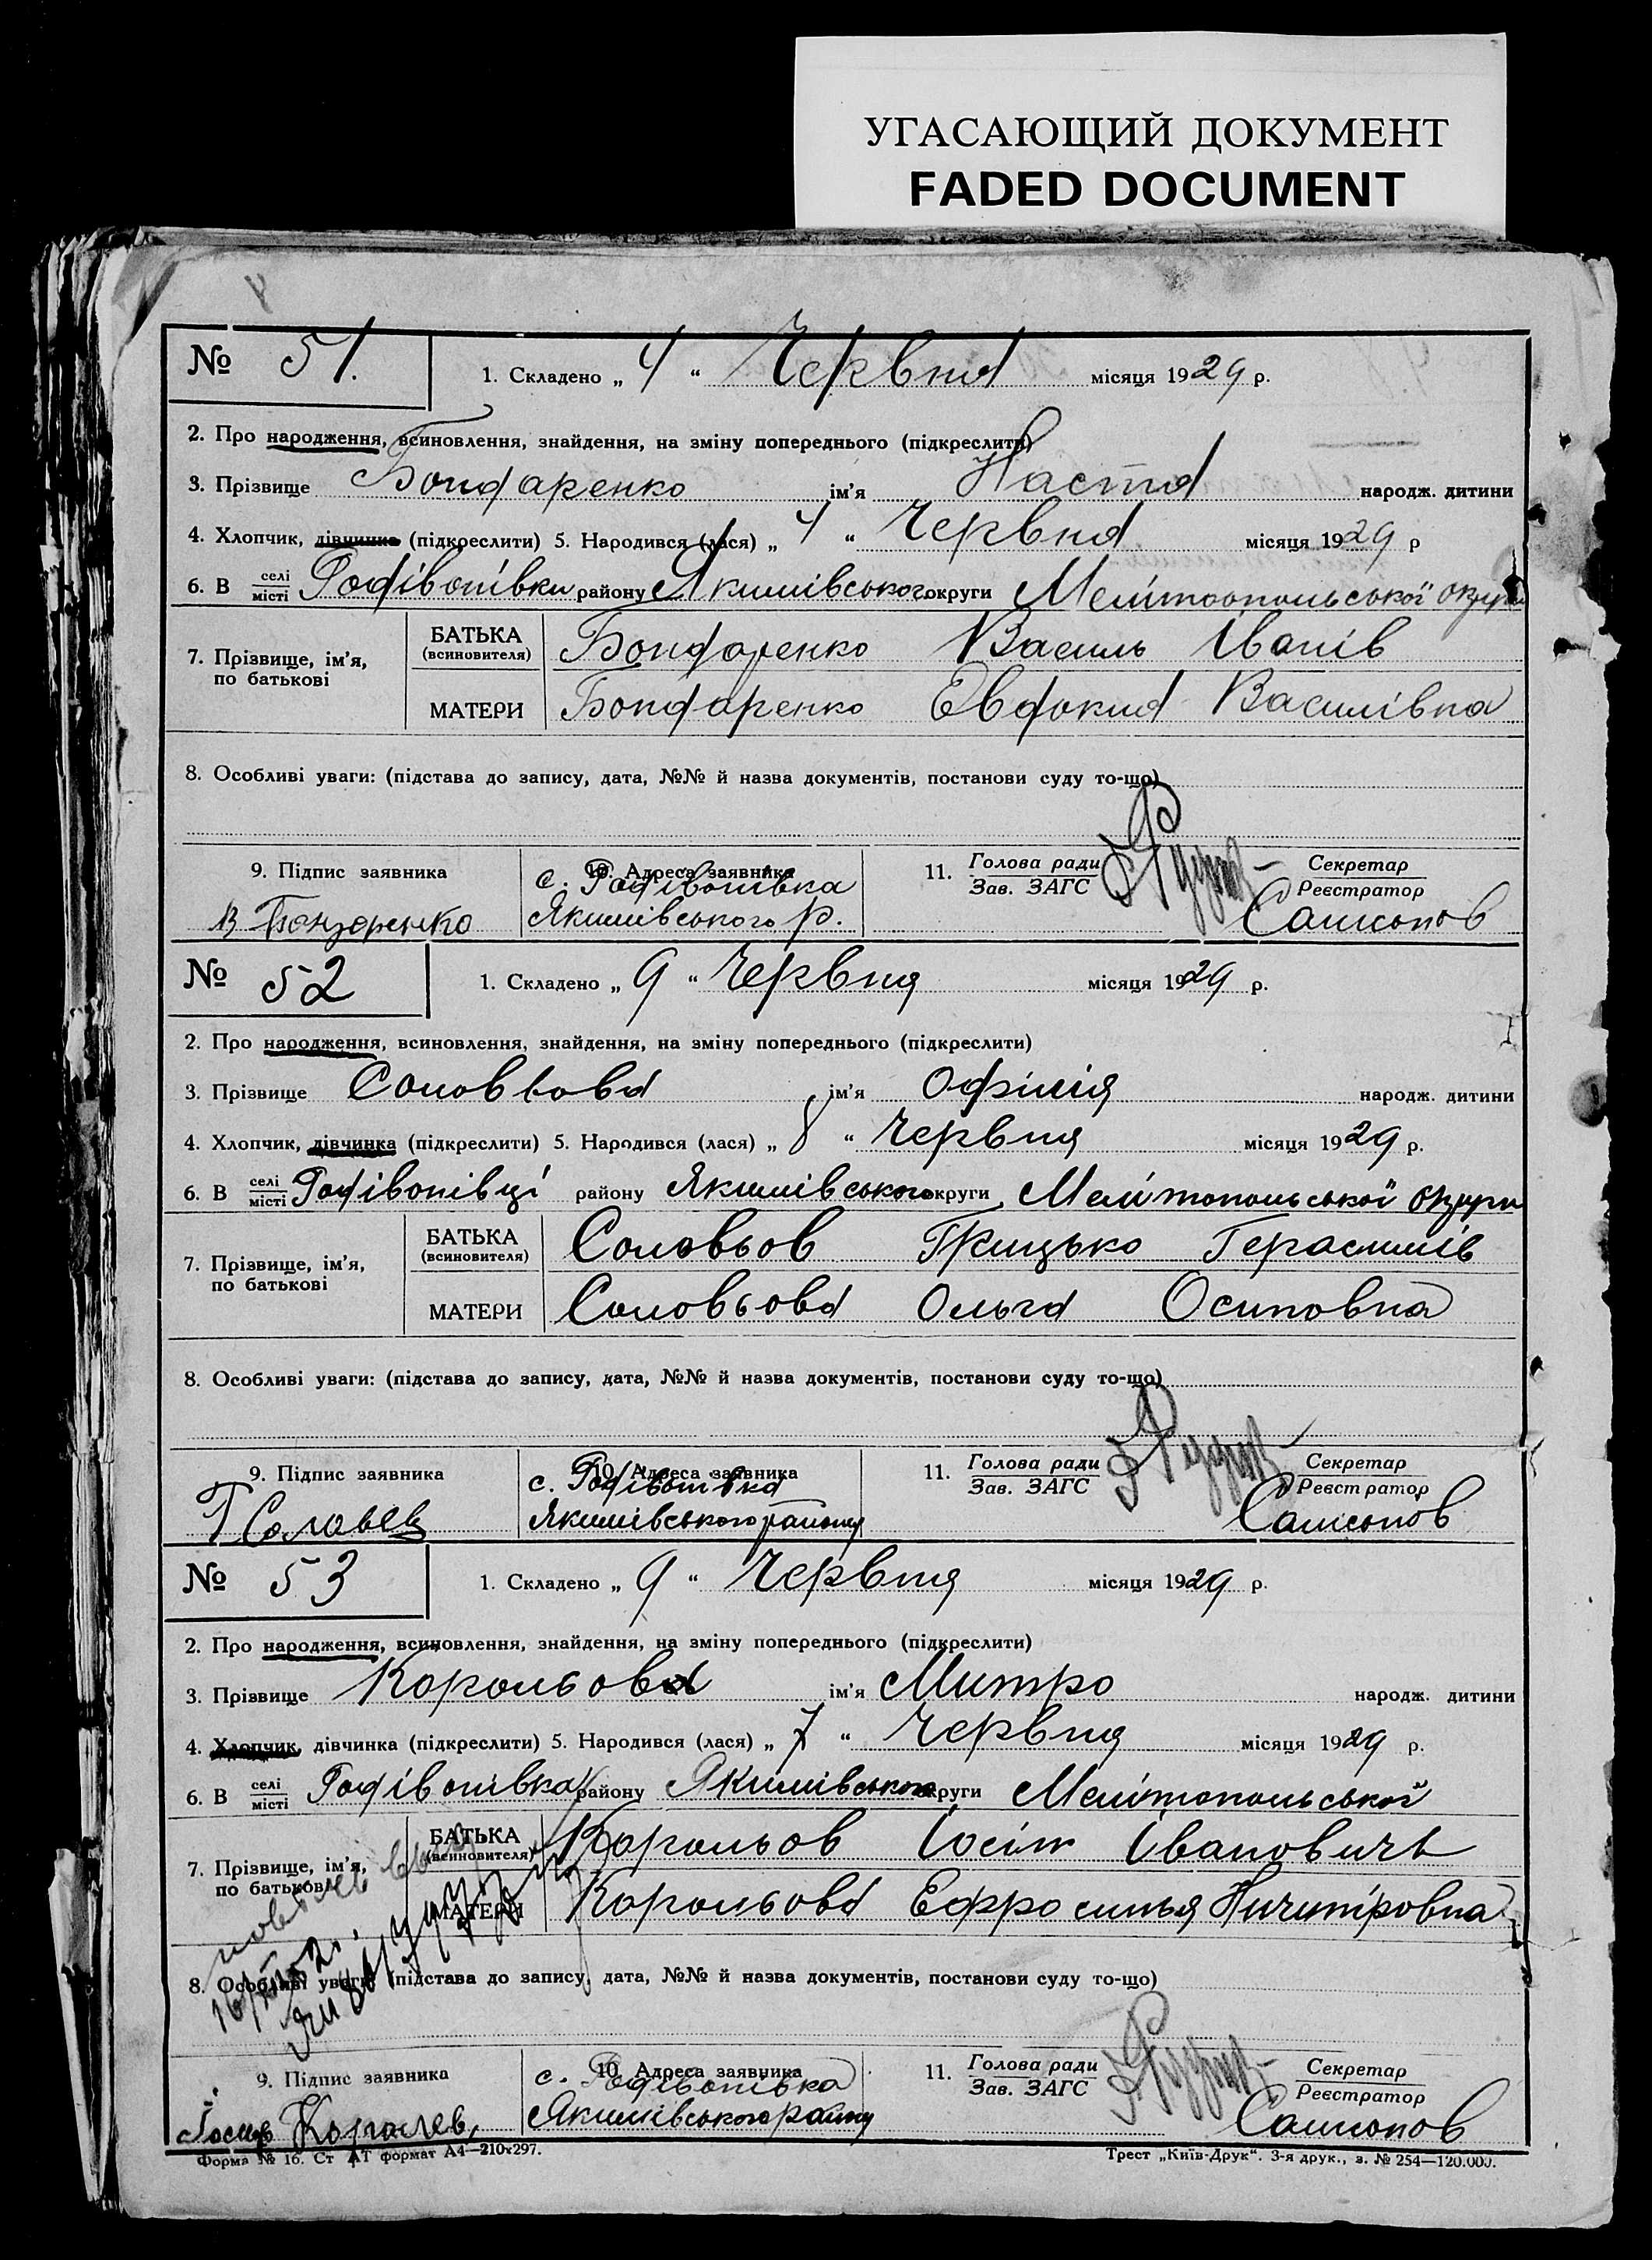 УГАСАЮЩИЙ ДОКУМЕНТ
FADED DOCUMENT
№ 51.
1. Складено „ 4 “ Червня місяця 1929 р.
2. Про народження, всиновлення, знайдення, на зміну попереднього (підкреслити)
3. Прізвище Бондаренко ім’я Настя народж. дитини
4. Хлопчик, дівчинка (підкреслити) 5. Народився (лася) „ 4 “ Червня місяця 1929 р
6. В селі місті Родівонівки району Якимівського округи Мелітопольської округи
7. Прізвище, ім’я, по батькові
БАТЬКА (всиновителя) Бондаренко Василь Іванів
МАТЕРИ Бондаренко Евдокия Василівна
8. Особливі уваги: (підстава до запису, дата, №№ й назва документів, постанови суду то-що)
9. Підпис заявника
В Бондаренко
10. Адреса заявника
с. Родівонівка
Якимівського р.
11. Голова ради Зав. ЗАГС
Секретар Реєстратор
Самсонов
№ 52
1. Складено „ 9 “ Червня місяця 1929 р.
2. Про народження, всиновлення, знайдення, на зміну попереднього (підкреслити)
3. Прізвище Соловьова ім’я Офімія народж. дитини
4. Хлопчик, дівчинка (підкреслити) 5. Народився (лася) „ 8 “ Червня місяця 1929 р.
6. В селі місті Родівонівці району Якимівського округи Мелітопольської округи
7. Прізвище, ім’я, по батькові
БАТЬКА (всиновителя) Соловьов Грицько Герасимів
МАТЕРИ Соловьова Ольга Осиповна
8. Особливі уваги: (підстава до запису, дата, №№ й назва документів, постанови суду то-що)
9. Підпис заявника
Г Соловьев
10. Адреса заявника
с. Родівонівка
Якимівського району
11. Голова ради Зав. ЗАГС
Секретар Реєстратор
Самсонов
№ 53
1. Складено „ 9 “ Червня місяця 1929 р.
2. Про народження, всиновлення, знайдення, на зміну попереднього (підкреслити)
3. Прізвище Корольова ім’я Митро народж. дитини
4. Хлопчик, дівчинка (підкреслити) 5. Народився (лася) „ 7 “ Червня місяця 1929 р.
6. В селі місті Родівонівка району Якимівського округи Мелітопольської
7. Прізвище, ім’я, по батькові
БАТЬКА (всиновителя) Корольов Іосіп Івановичь
МАТЕРИ Корольова Ефросинья
8. Особливі уваги: (підстава до запису, дата, №№ й назва документів, постанови суду то-що)
9. Підпис заявника
Королев
10. Адреса заявника
с. Родівонівка
Якимівського району
11. Голова ради Зав. ЗАГС
Секретар Реєстратор
Самсонов
Форма № 16. Ст АТ формат А4—210х297.
Трест „Київ-Друк“. 3-я друк., з. № 254—120.000.